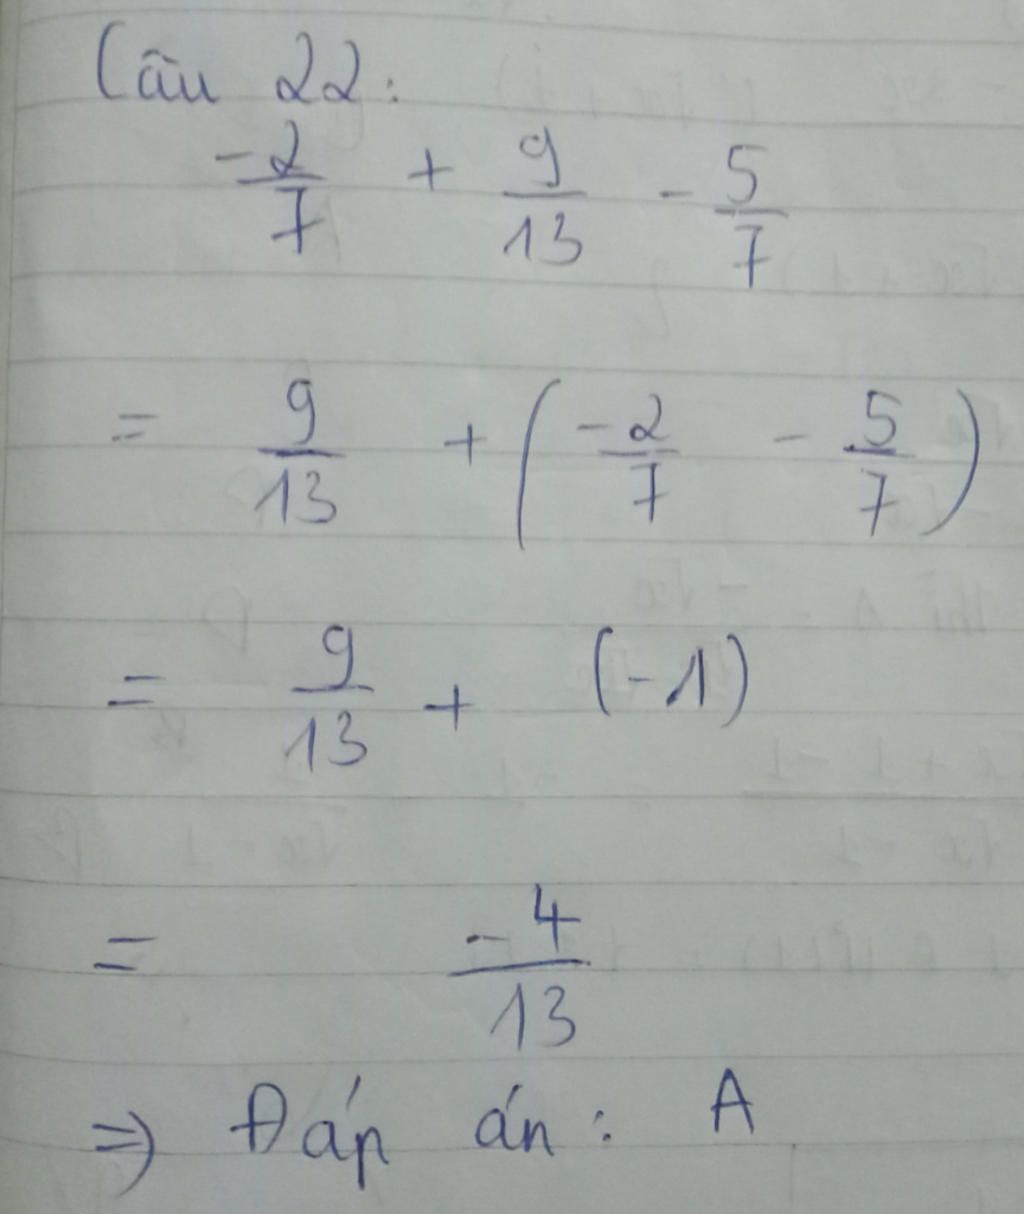 Câu 22:
-2/7 + 9/13 - 5/7
= 9/13 + (-2/7 - 5/7)
= 9/13 + (-1)
= -4/13
⇒ Đáp án: A